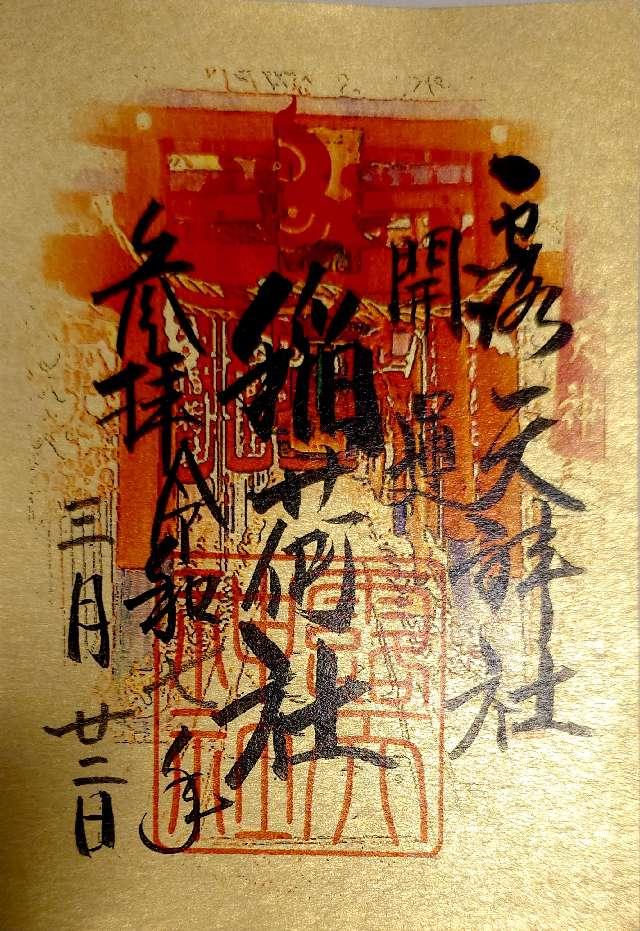 露天神社
開運
稲荷社
参拝 令和七年
三月廿二日
天神